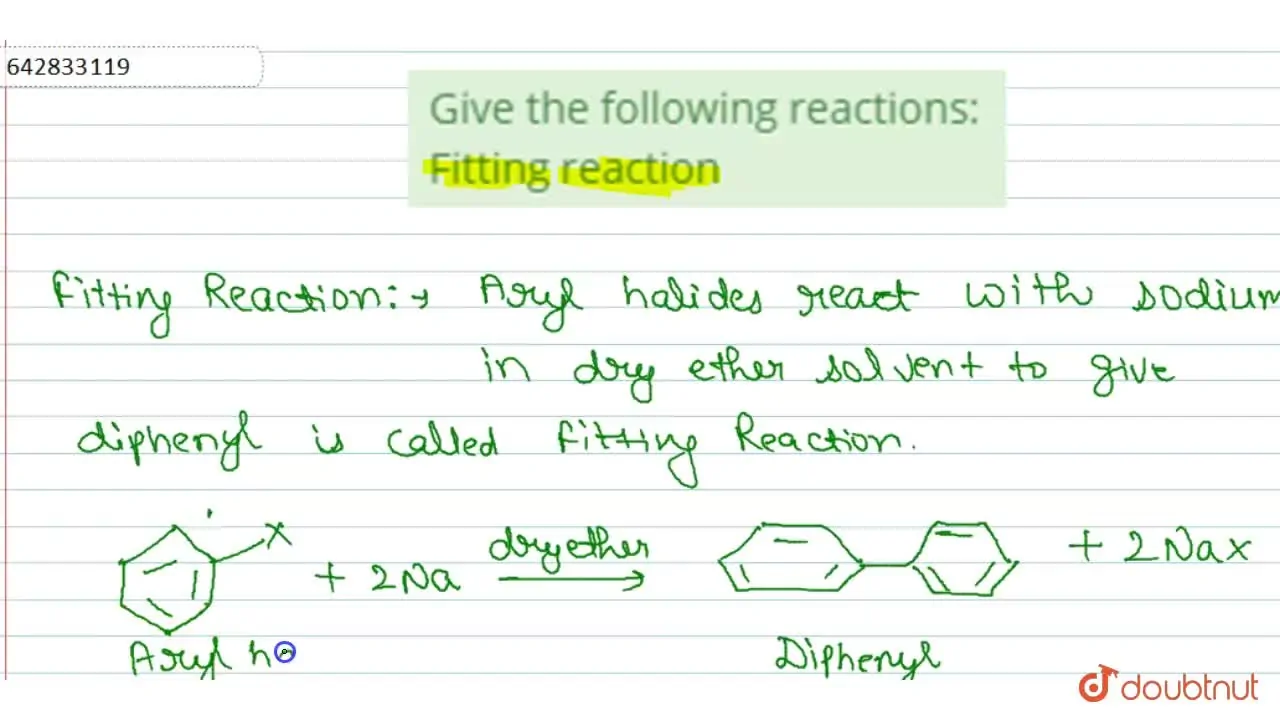 642833119
Give the following reactions:
Fitting reaction
Fitting Reaction:→ Aryl halides react with sodium
in dry ether solvent to give
diphenyl is called fitting Reaction.
X + 2Na dry ether → + 2NaX
Aryl ha Diphenyl
doubtnut